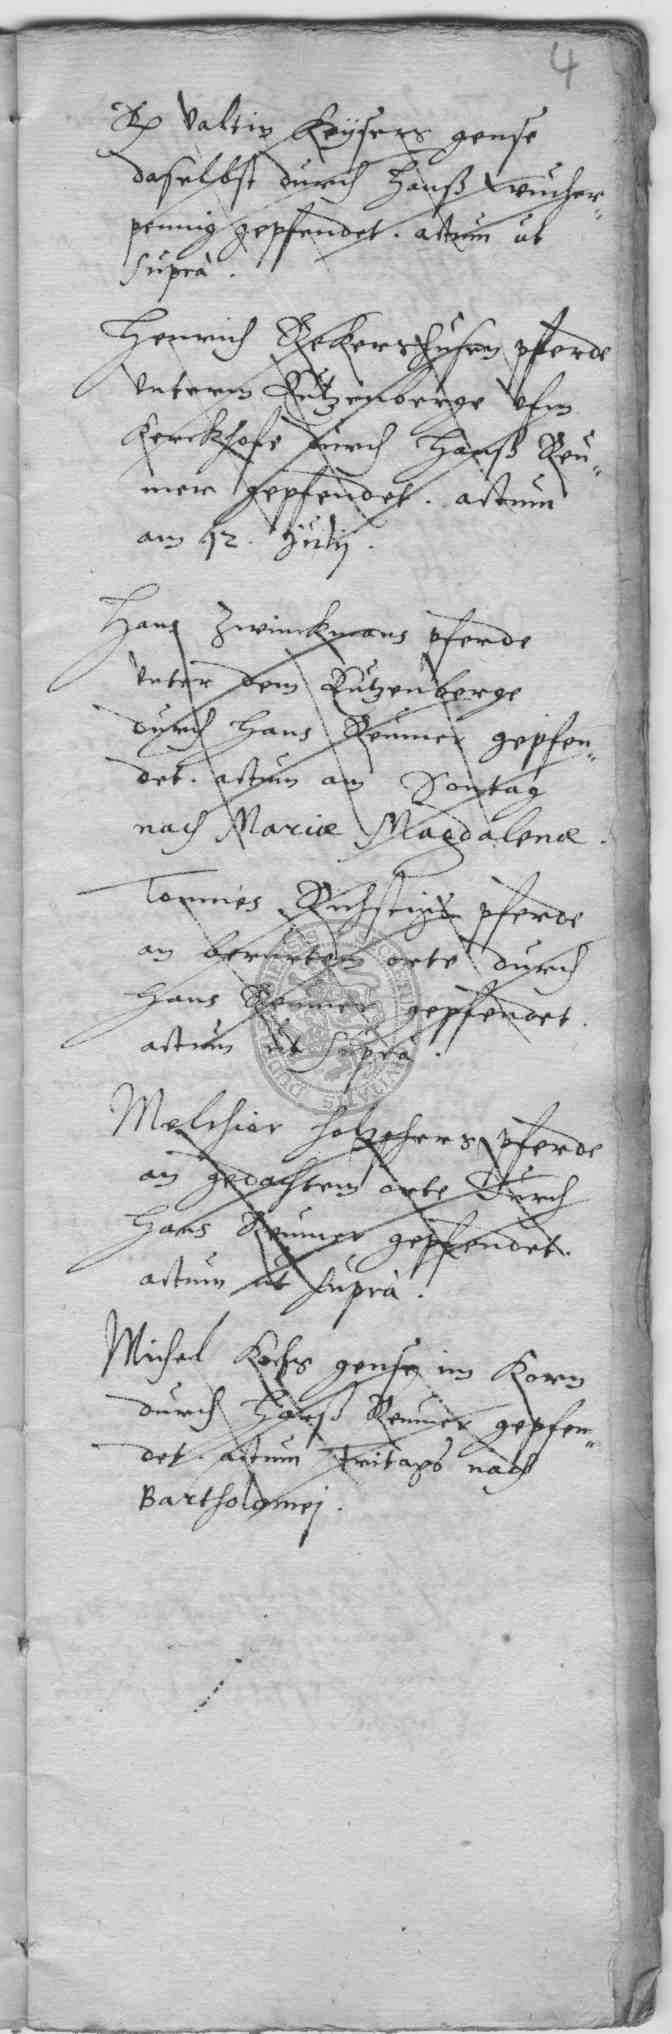 4
Valtin Keÿsers gense
daselbst durch Hanß Wucher„
pennig gepfendet. actum ut
suprà.
Henrich Rekershusen pferde
unterm Rutzenberge ufm
Kerckhofe durch Hanß Reu„
mer gepfendet. actum
am 12. Julij.
Hans Zwinckmans pferde
unter dem Rutzenberge
durch Hans Reumer gepfen„
det. actum am Sontag
nach Mariæ Magdalenæ.
Tonnies pferde
an berurtem orte durch
Hans Reumer gepfendet.
actum ut suprà.
Melchior pferde
an gedachtem orte durch
Hans Reumer gepfendet.
actum ut suprà.
Michel Kochs gense im Korn
durch Hanß Reumer gepfen„
det. actum Fritags nach
Bartholomej.